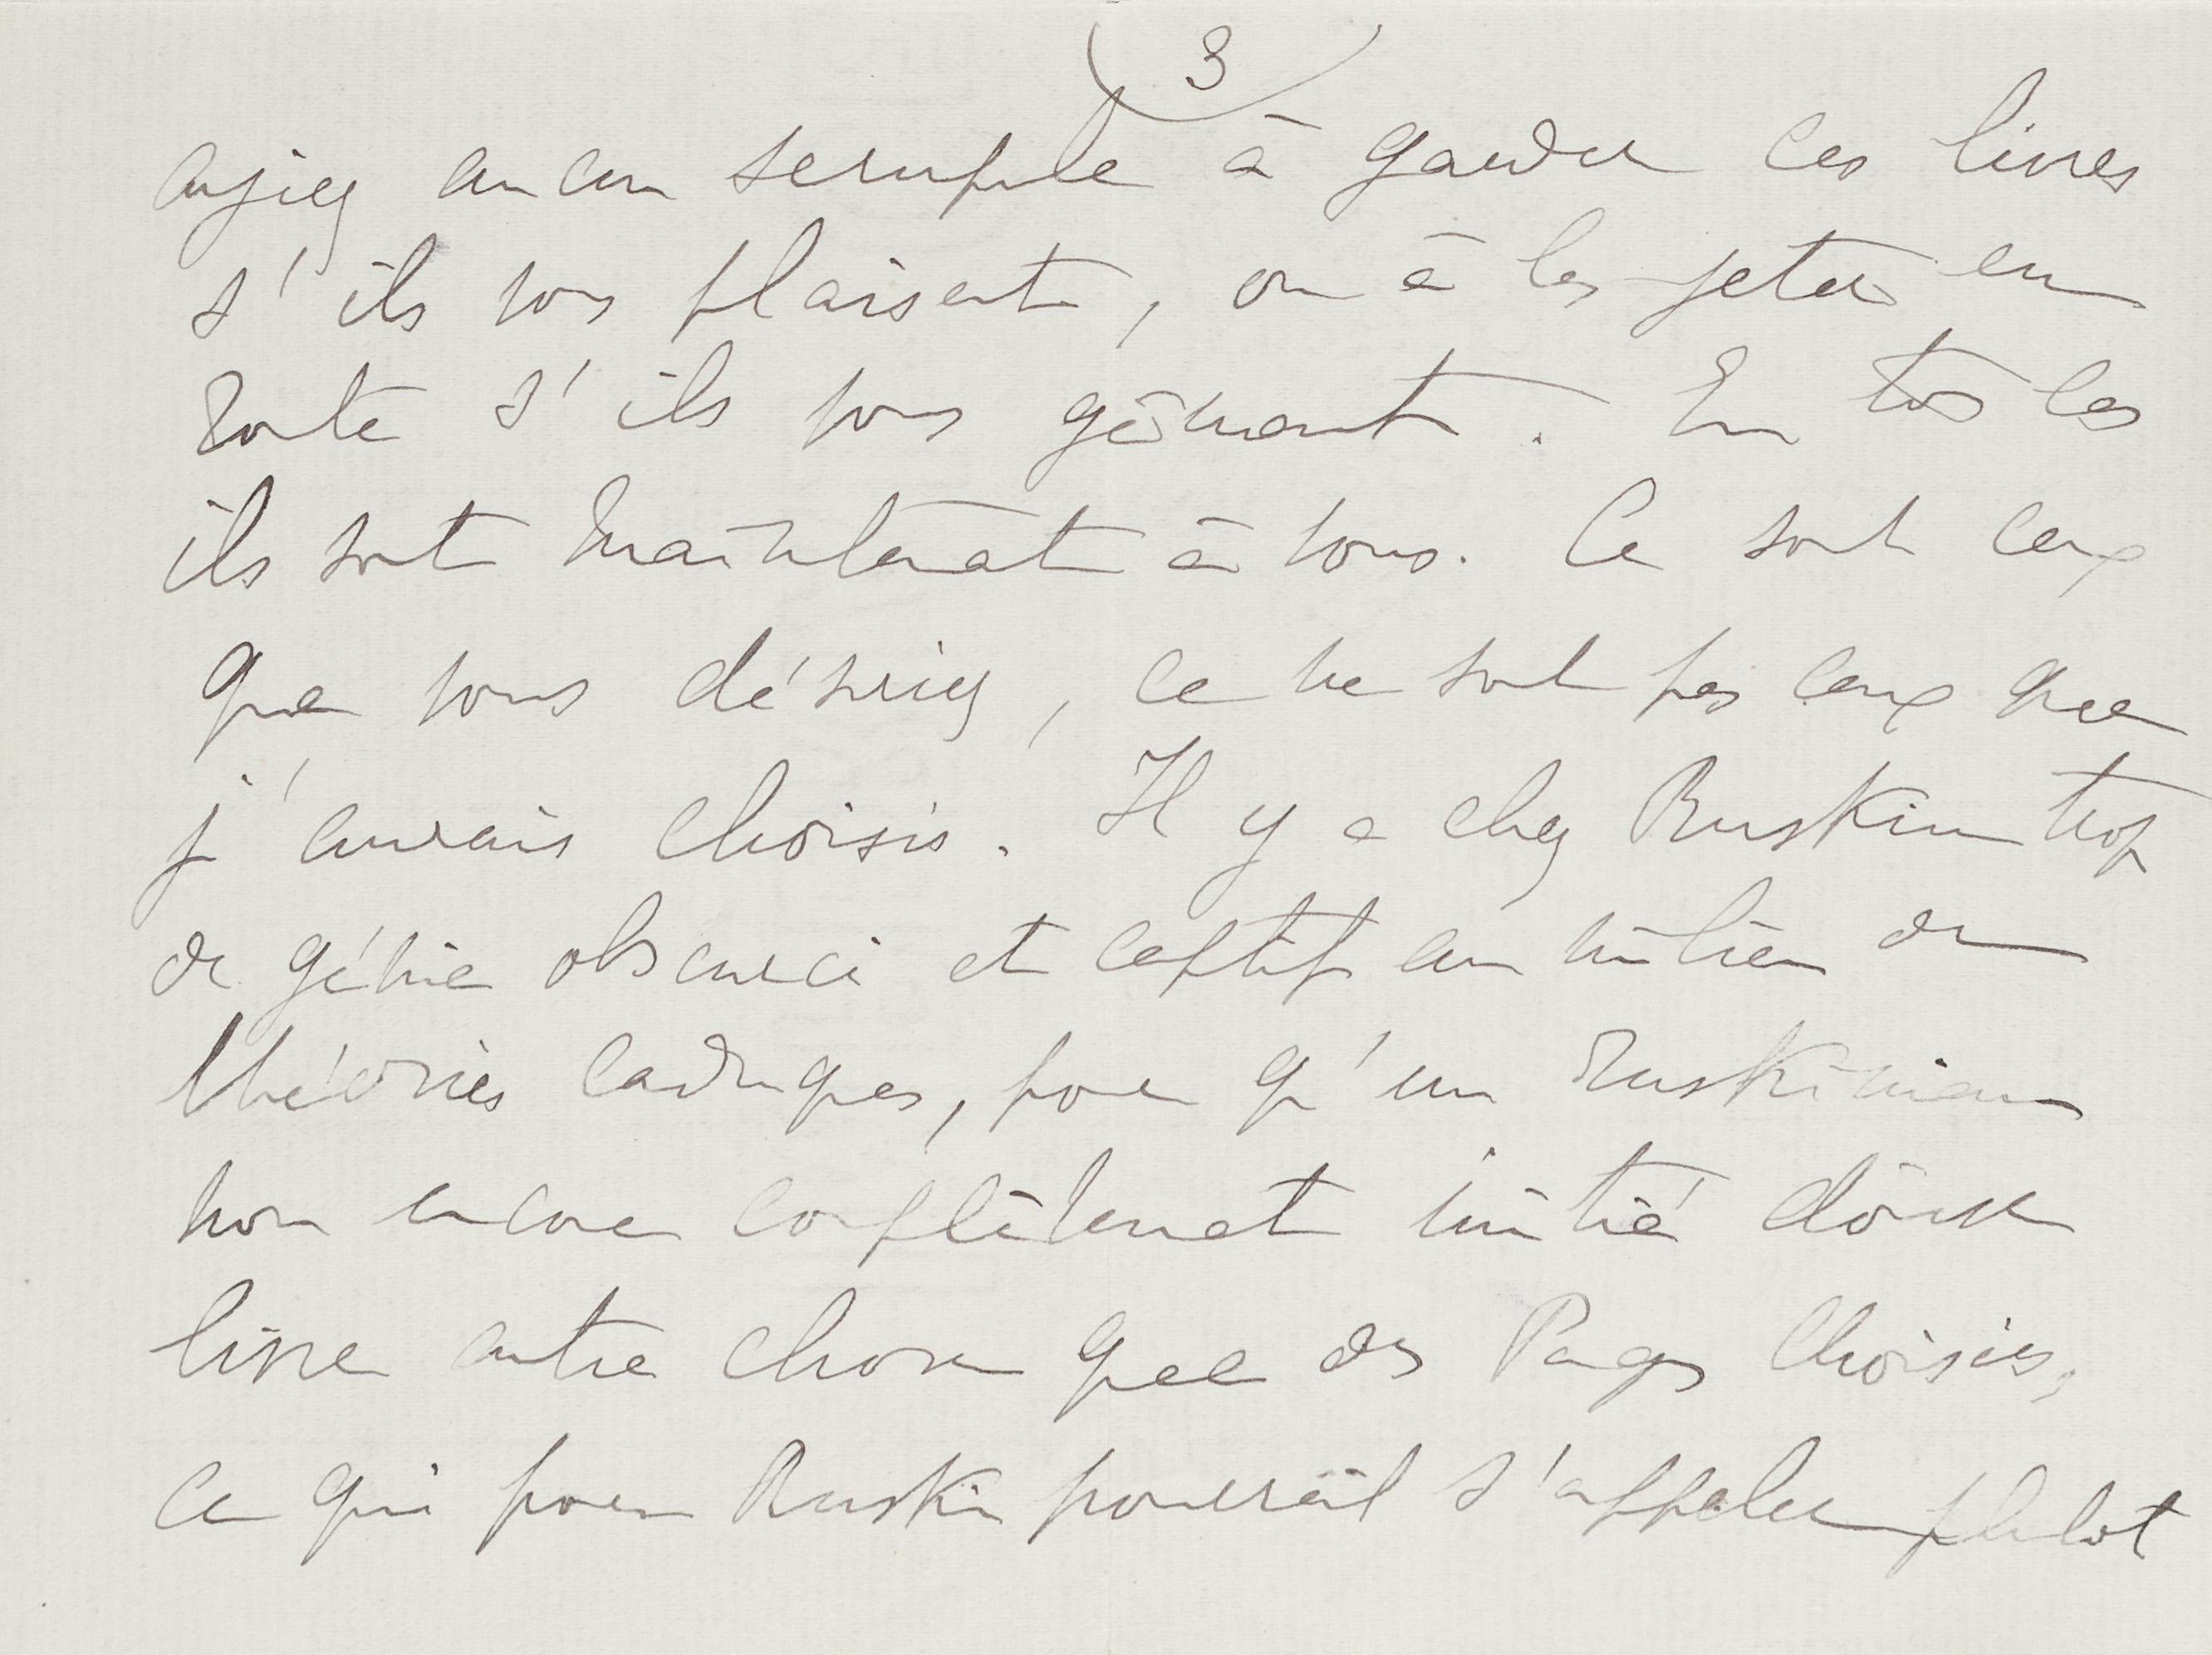 3
ayiez aucun scrupule à garder ces livres
s'ils vous plaisent, ou à les jeter en
route s'ils vous gênent. En tos les
ils sont maintenant à vous. Ce sont ceux
que vous désiriez, ce ne sont pas ceux que
j'aurais choisis. Il y a chez Ruskin trop
de génie obscurci et captif au milieu de
théories caduques, pour qu'un ruskinien
non encore complètement initié doive
lire autre chose que des Pages Choisies,
ce qui pour Ruskin pourrait s'appeler plutot